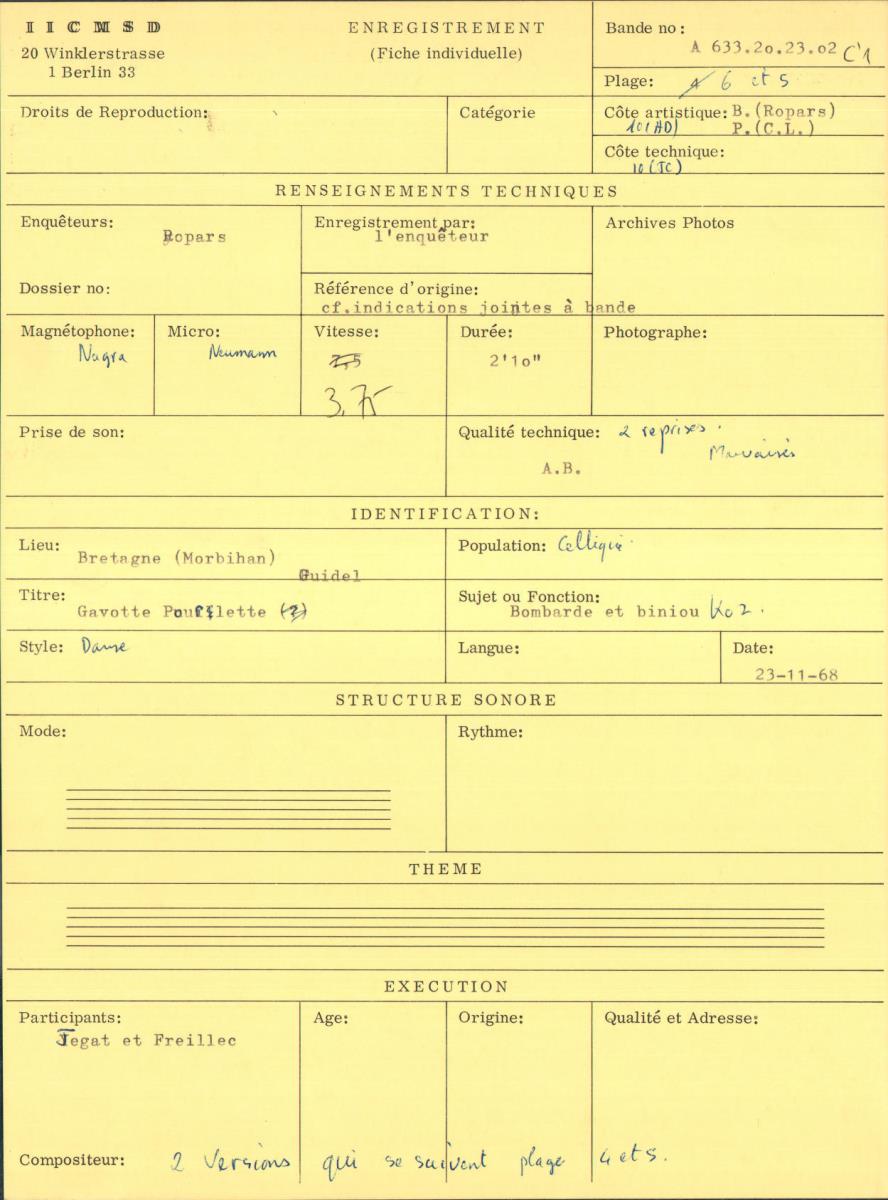 I I C M S D
20 Winklerstrasse
1 Berlin 33
ENREGISTREMENT
(Fiche individuelle)
Bande no :
A 633.2o.23.o2 C'1
Plage: 6 et 5
Droits de Reproduction:
Catégorie
Côte artistique: B.(Ropars)
10(AD) P.(C.L.)
Côte technique:
10 (JC)
RENSEIGNEMENTS TECHNIQUES
Enquêteurs:
Ropars
Enregistrement par:
l'enquêteur
Archives Photos
Dossier no:
Référence d'origine:
cf.indications jointes à bande
Magnétophone:
Nagra
Micro:
Neumann
Vitesse:
7,5
3,75
Durée:
2'1o"
Photographe:
Prise de son:
Qualité technique: 2 reprises.
Mauvaises
A.B.
IDENTIFICATION:
Lieu:
Bretagne (Morbihan)
Guidel
Population: Celtique
Titre:
Gavotte (?)
Sujet ou Fonction:
Bombarde et biniou Koz.
Style: Danse
Langue:
Date:
23-11-68
STRUCTURE SONORE
Mode:
Rythme:
THEME
EXECUTION
Participants:
Jegat et Freillec
Age:
Origine:
Qualité et Adresse:
Compositeur: 2 Versions qui se suivent plage 4 et 5.